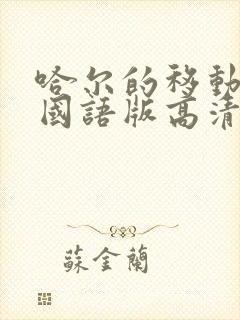 哈尔的移動
國語版高清
蘇金蘭